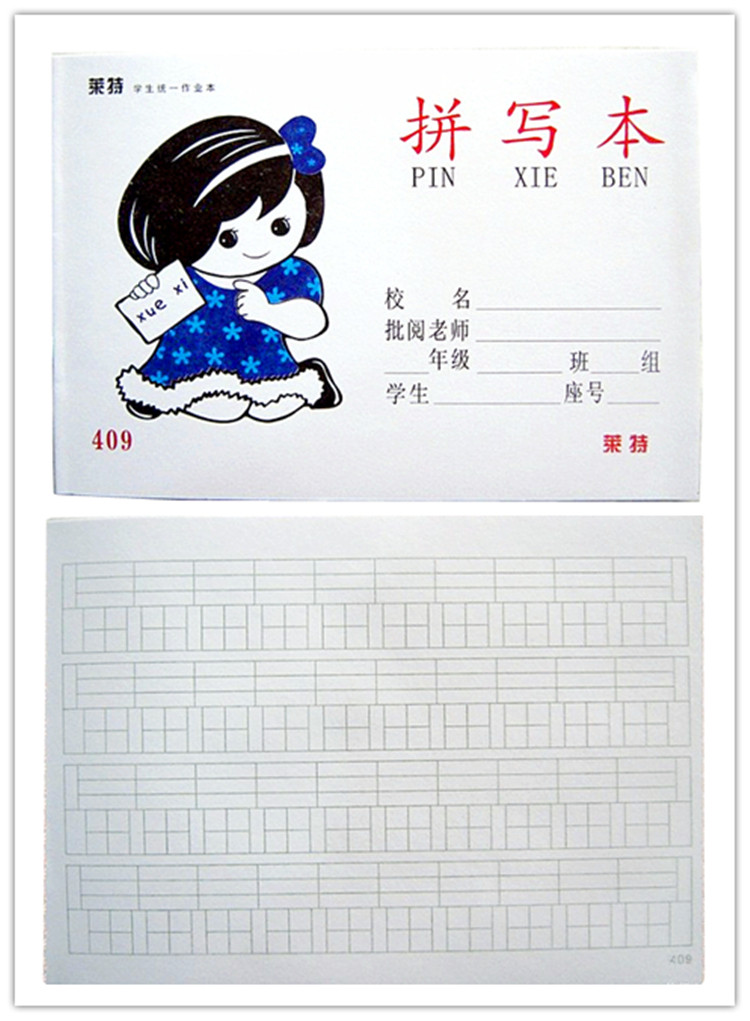 莱特 学生统一作业本
拼写本
PIN XIE BEN
xue xi
校 名
批阅老师
年级 班 组
学生 座号
409
莱特
409